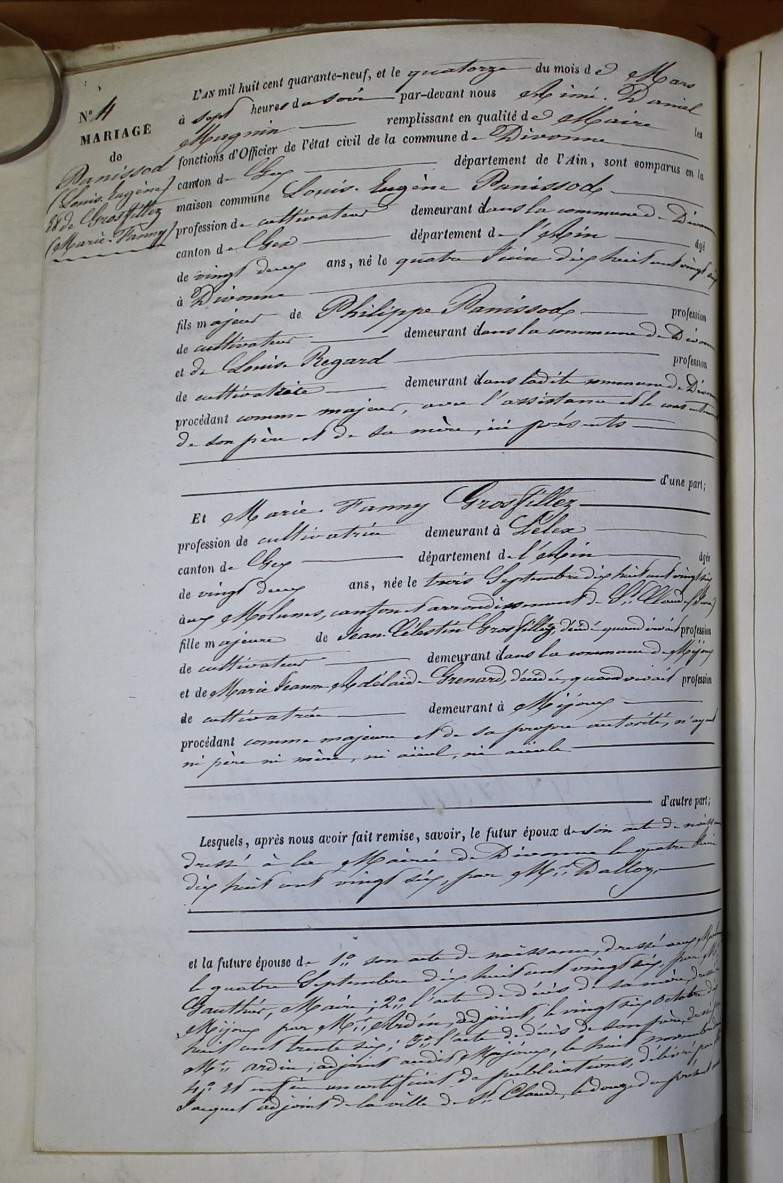 L'AN mil huit cent quarante-neuf, et le quatorze du mois de Mars
à sept heures du soir par-devant nous Aimé Daniel
Magnin remplissant en qualité de Maire les
fonctions d'Officier de l'état civil de la commune de Divonne
canton de Gex département de l'Ain, sont comparus en la
maison commune Louis Eugène Panissod
profession de cultivateur demeurant dans la commune de Divonne
canton de Gex département de l'Ain âgé
de vingt deux ans, né le quatre Juin dix huit cent vingt six
à Divonne
fils majeur de Philippe Panissod profession
de cultivateur demeurant dans la commune de Divonne
et de Louise Regard profession
de cultivatrice demeurant dans ladite commune de Divonne
procédant comme majeur, avec l'assistance et le consentement
de son père et de sa mère, ici présents
d'une part;
Et Marie Fanny Grosfillez
profession de cultivatrice demeurant à Lélex
canton de Gex département de l'Ain âgée
de vingt deux ans, née le trois Septembre dix huit cent vingt six
aux Molunes, canton et arrondissement de St Claude (Jura)
fille majeure de Jean Célestin Grosfillez, décédé quand vivait profession
de cultivateur demeurant dans la commune de Mijoux
et de Marie Jeanne Adélaïd Grenard, décédée, quand vivait profession
de cultivatrice demeurant à Mijoux
procédant comme majeure et de sa propre autorité, n'ayant
ni père ni mère, ni aïeul, ni aïeule
d'autre part;
Lesquels, après nous avoir fait remise, savoir, le futur époux de son acte de naissance
dressé à la Mairie de Divonne le quatre Juin
dix huit cent vingt six, par Mr. Dalloz
et la future épouse de 1º son acte de naissance, dressé aux
le quatre Septembre dix huit cent vingt six, par Mr
Gauthier, Maire; 2º l'acte de décès de sa mère, dressé
Mijoux par Mr. Ardin, adjoint le vingt six octobre dix
huit cent trente six; 3º l'acte de décès de son père,
Mr. Ardin, adjoint audit Mijoux, le huit novembre
4º Et enfin un certificat de publications, délivré par
Jacquet adjoint de la ville de St. Claude, le douze du présent
Nº 4
MARIAGE
de
Panissod
(Louis Eugène)
Et de Grosfillez
(Marie Fanny)